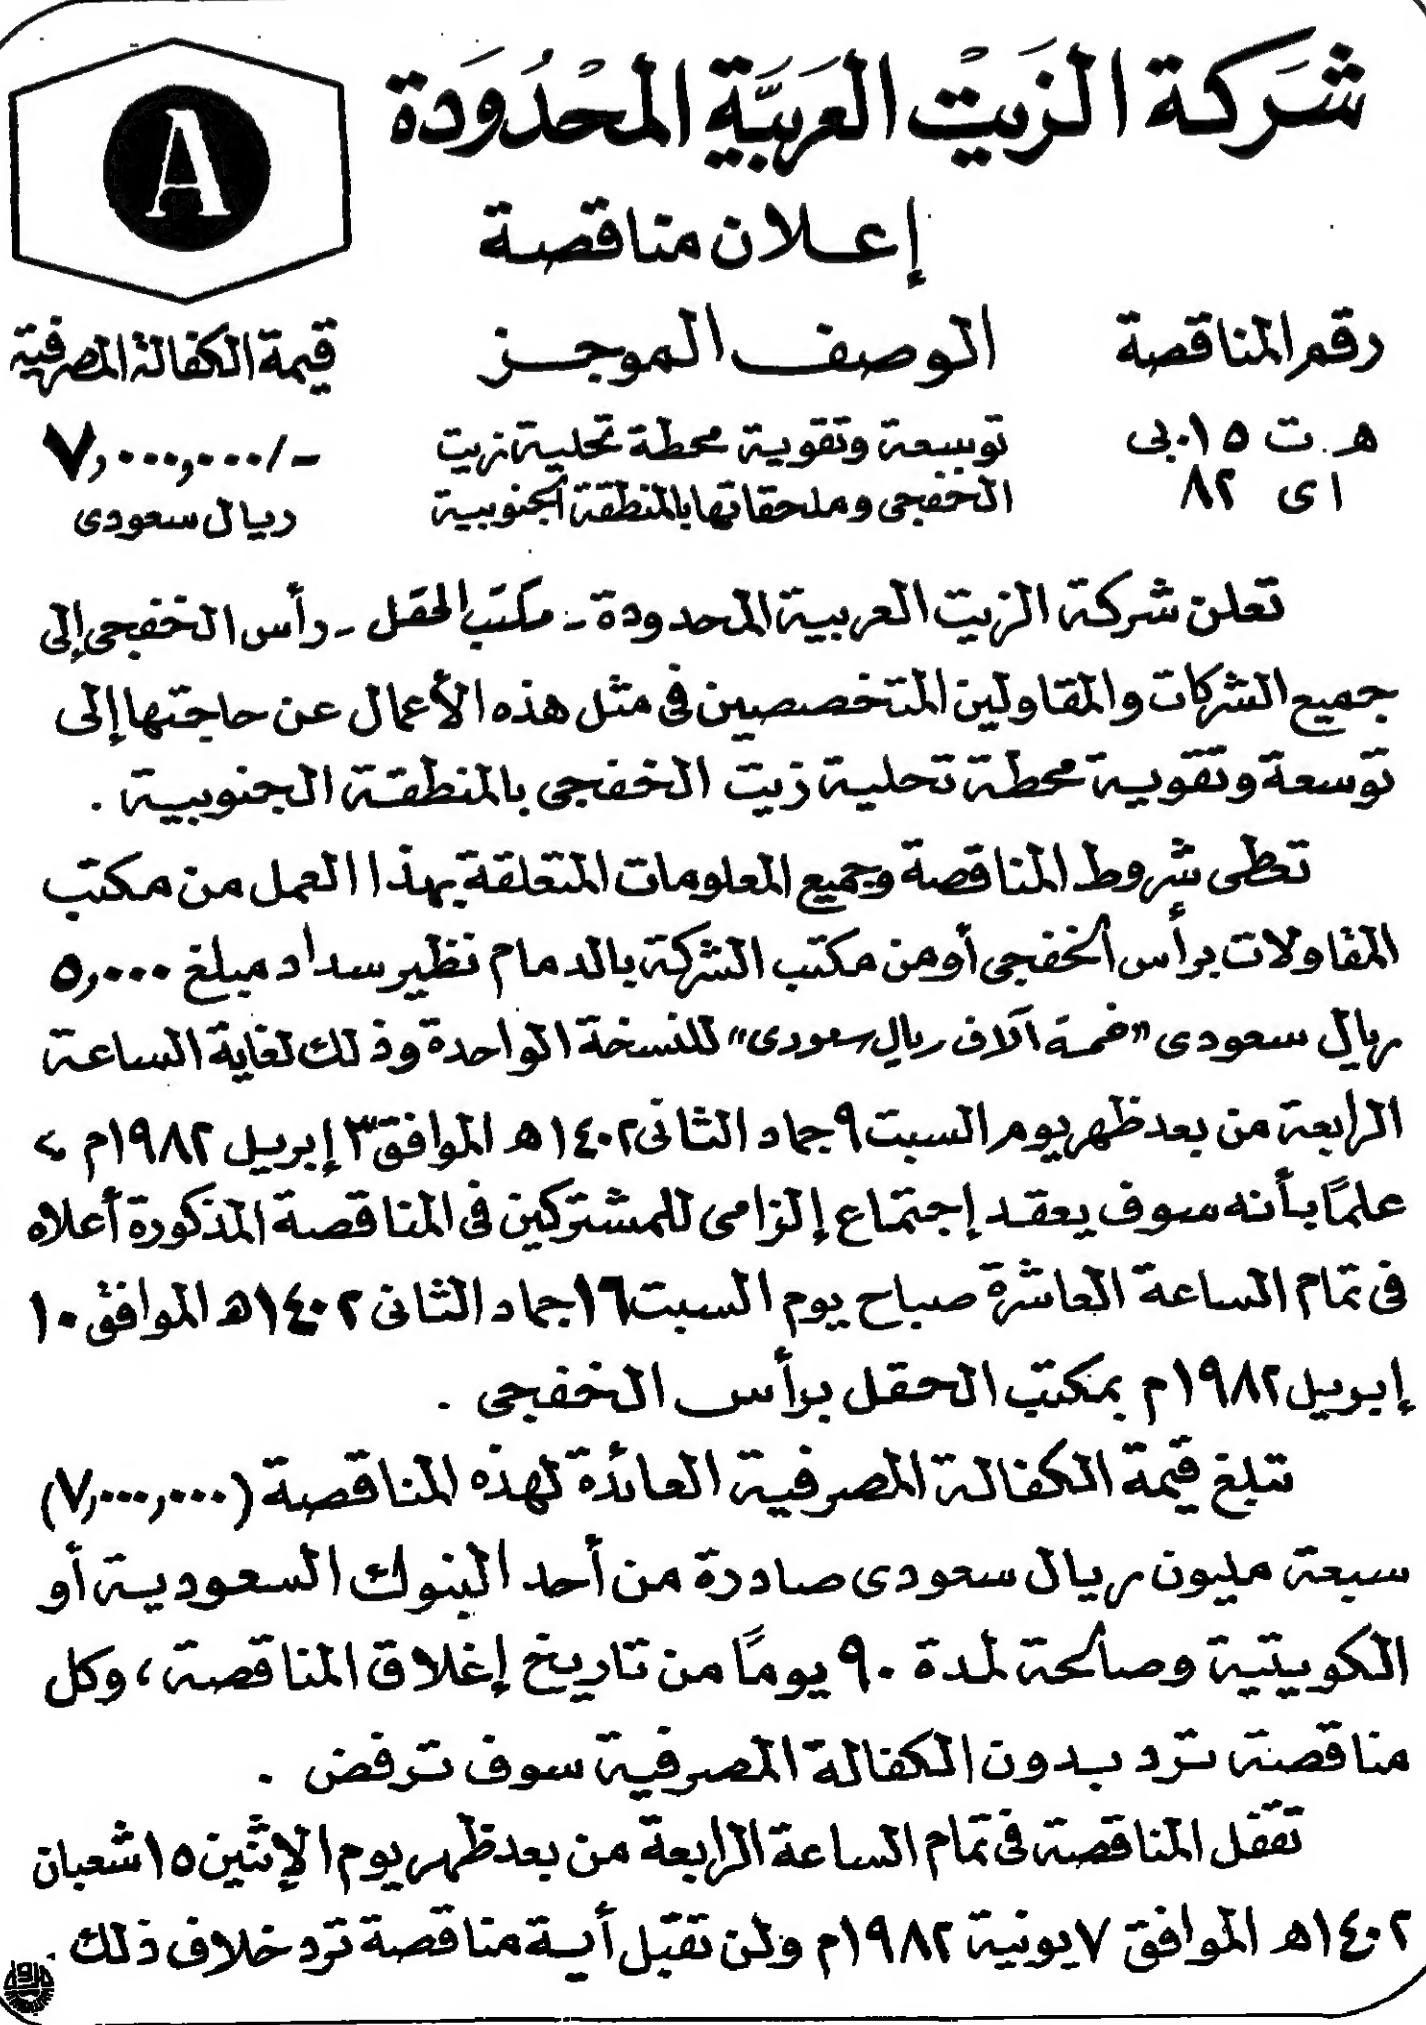 شَركة الزَيتْ العَربيَّة المحْدُودَة
A
إعلان مناقصة
رقم المناقصة الوصف الموجز قيمة الكفالة المصرفية
هـ. ت ٠١٥ بى توسعة وتقوية محطة تحلية زيت ٧,٠٠٠,٠٠٠/-
اى ٨٢ الخفجى وملحقاتها بالمنطقة الجنوبية ريال سعودى
تعلن شركة الزيت العربية المحدودة - مكتب الحقل - رأس الخفجى إلى
جميع الشركات والمقاولين المتخصصين فى مثل هذه الأعمال عن حاجتها إلى
توسعة وتقوية محطة تحلية زيت الخفجى بالمنطقة الجنوبية .
تطى شروط المناقصة وجميع المعلومات المتعلقة بهذا العمل من مكتب
المقاولات برأس الخفجى أو من مكتب الشركة بالدمام نظير سداد مبلغ ٥,٠٠٠
ريال سعودى "خمسة آلاف ريال سعودى" للنسخة الواحدة وذلك لغاية الساعة
الرابعة من بعد ظهر يوم السبت ٩ جماد الثانى ١٤٠٢هـ الموافق ٣ إبريل ١٩٨٢م
علمًا بأنه سوف يعقد إجتماع إلزامى للمشتركين فى المناقصة المذكورة أعلاه
فى تمام الساعة العاشرة صباح يوم السبت ١٦ جماد الثانى ١٤٠٢هـ الموافق ١٠
إبريل ١٩٨٢م بمكتب الحقل برأس الخفجى .
تبلغ قيمة الكفالة المصرفية العائدة لهذه المناقصة (٧,٠٠٠,٠٠٠)
سبعة مليون ريال سعودى صادرة من أحد البنوك السعودية أو
الكويتية وصالحة لمدة ٩٠ يومًا من تاريخ إغلاق المناقصة ، وكل
مناقصة ترد بدون الكفالة المصرفية سوف ترفض .
تقفل المناقصة فى تمام الساعة الرابعة من بعد ظهر يوم الإثنين ١٥ شعبان
١٤٠٢هـ الموافق ٧ يونية ١٩٨٢م ولن تقبل أية مناقصة ترد خلاف ذلك .